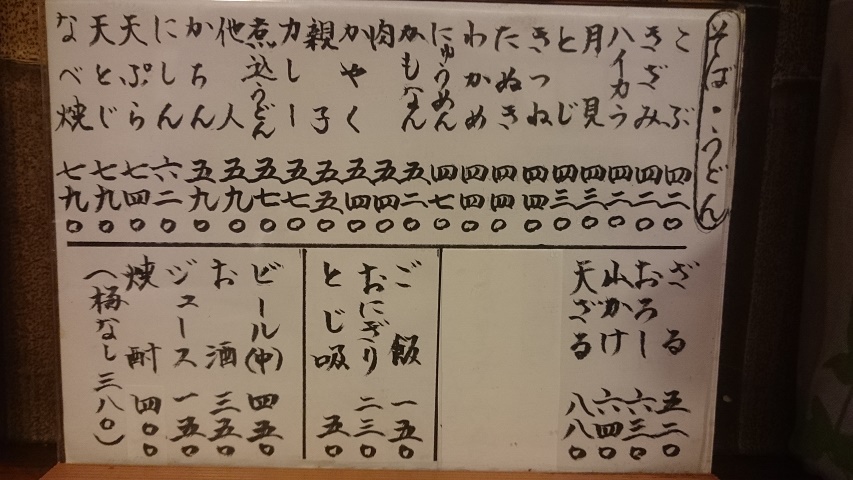 そば・うどん
こぶ 四二〇
きざみ 四二〇
ハイカラ 四二〇
月見 四三〇
とじ 四三〇
きつね 四四〇
たぬき 四四〇
わかめ 四四〇
にゅうめん 四七〇
かもなん 五二〇
肉 五四〇
かやく 五四〇
親子 五五〇
カレー 五七〇
煮込うどん 五七〇
他人 五九〇
かちん 五九〇
にしん 六二〇
天ぷら 七四〇
天とじ 七九〇
なべ焼 七九〇
ざる 五二〇
おろし 六三〇
山かけ 六四〇
天ざる 八八〇
ご飯 一五〇
おにぎり 二三〇
とじ吸 五〇
ビール(中) 四五〇
お酒 三五〇
ジュース 一五〇
焼酎 四〇〇
(梅なし三八〇)